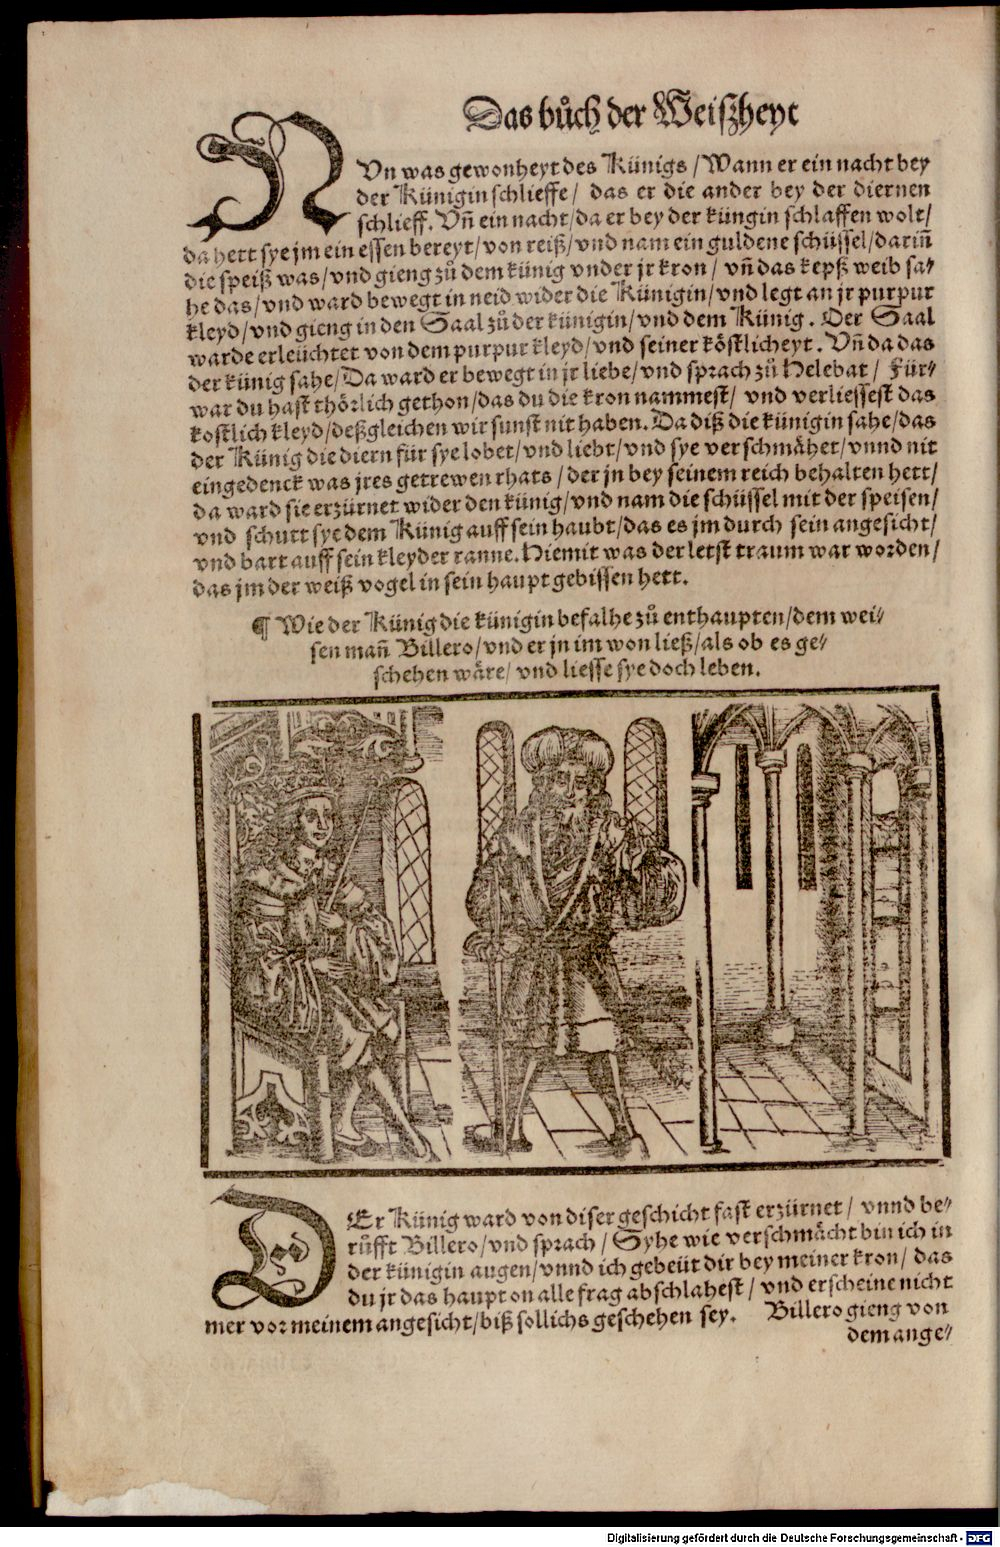 Das bůch der Weißheyt
NVn was gewonheyt des Künigs / Wann er ein nacht bey
der Künigin schlieffe / das er die ander bey der diernen
schlieff. Vñ ein nacht / da er bey der küngin schlaffen wolt /
da hett sye jm ein essen bereyt / von reiß / vnd nam ein guldene schüssel / dariñ
die speiß was / vnd gieng zů dem künig vnder jr kron / vñ das kepß weib sa⸗
he das / vnd ward bewegt in neid wider die Künigin / vnd legt an jr purpur
kleyd / vnd gieng in den Saal zů der künigin / vnd dem Künig. Der Saal
warde erleüchtet von dem purpur kleyd / vnd seiner köstlicheyt. Vñ da das
der künig sahe / Da ward er bewegt in jr liebe / vnd sprach zů Helebat / Für⸗
war du hast thörlich gethon / das du die kron nammest / vnd verliessest das
kostlich kleyd / deßgleichen wir sunst nit haben. Da diß die künigin sahe / das
der Künig die diern für sye lobet / vnd liebt / vnd sye verschmähet / vnnd nit
eingedenck was jres getrewen rhats / der jn bey seinem reich behalten hett /
da ward sie erzürnet wider den künig / vnd nam die schüssel mit der speisen /
vnd schutt sye dem Künig auff sein haubt / das es jm durch sein angesicht /
vnd bart auff sein kleyder ranne. Hiemit was der letst traum war worden /
das jm der weiß vogel in sein haupt gebissen hett.
¶ Wie der Künig die künigin befalhe zů enthaupten / dem wei⸗
sen mañ Billero / vnd er jn im won ließ / als ob es ge⸗
schehen wäre / vnd liesse sye doch leben.
DEr Künig ward von diser geschicht fast erzürnet / vnnd be⸗
růfft Billero / vnd sprach / Syhe wie verschmächt bin ich in
der künigin augen / vnnd ich gebeüt dir bey meiner kron / das
du jr das haupt on alle frag abschlahest / vnd erscheine nicht
mer vor meinem angesicht / biß sollichs geschehen sey. Billero gieng von
dem ange⸗
Digitalisierung gefördert durch die Deutsche Forschungsgemeinschaft - DFG